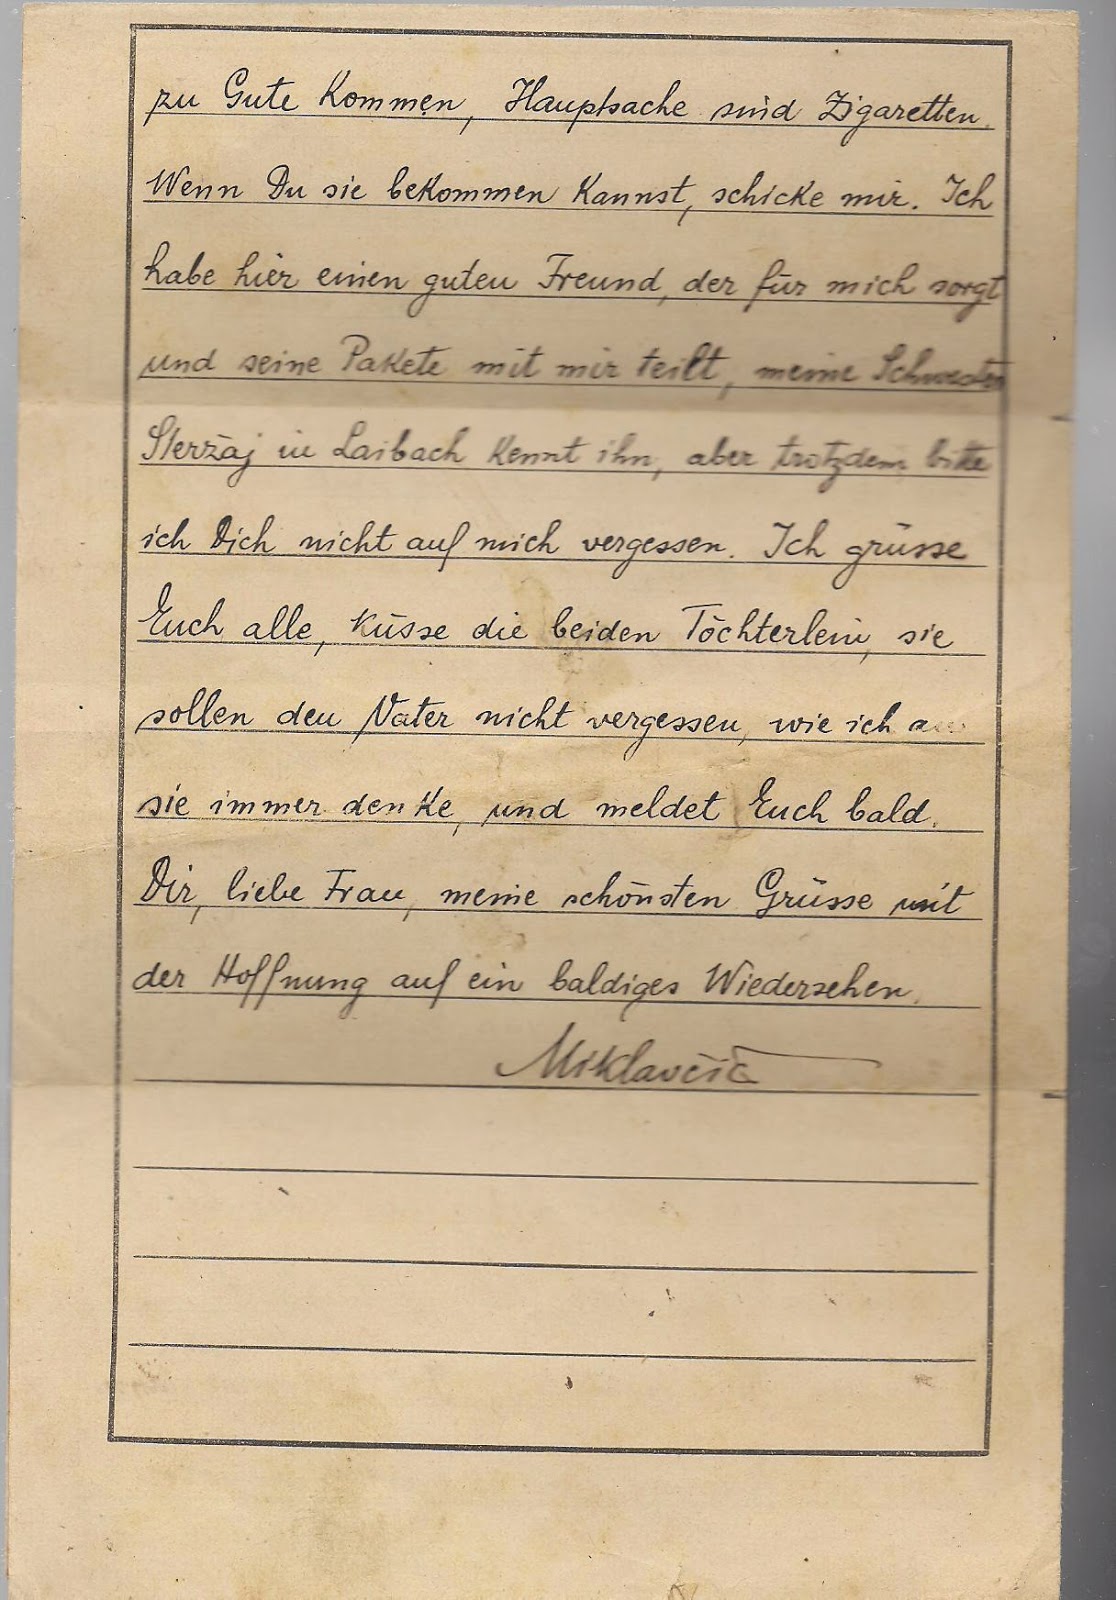 zu Gute Kommen, Hauptsache sind Zigaretten.
Wenn Du sie bekommen Kannst, schicke mir. Ich
habe hier einen guten Freund, der für mich sorgt
und seine Pakete mit mir teilt, meine Schwester
Steržaj in Laibach Kennt ihn, aber trotzdem bitte
ich Dich nicht auf mich vergessen. Ich grüsse
Euch alle, küsse die beiden Töchterlein, sie
sollen den Vater nicht vergessen, wie ich
sie immer denke, und meldet Euch bald.
Dir, liebe Frau, meine schönsten Grüsse mit
der Hoffnung auf ein baldiges Wiedersehen.
Miklavčič